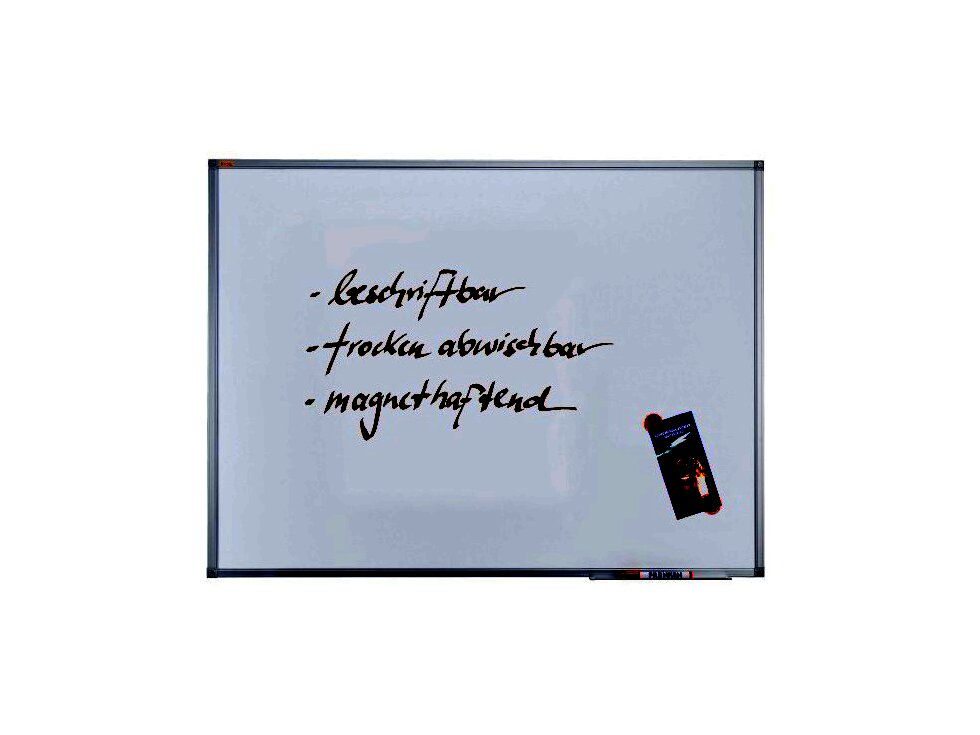 - beschriftbar
- trocken abwischbar
- magnethaftend